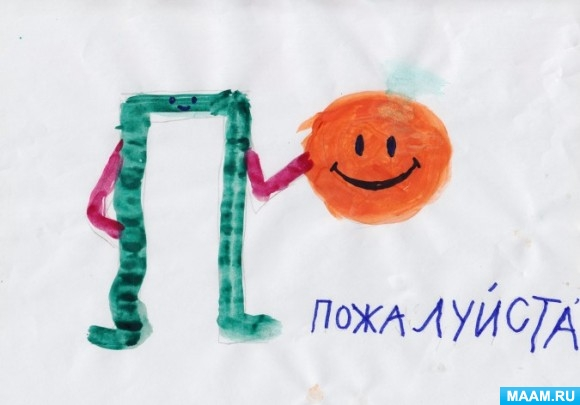 П
ПОЖАЛУЙСТА
MAAM.RU